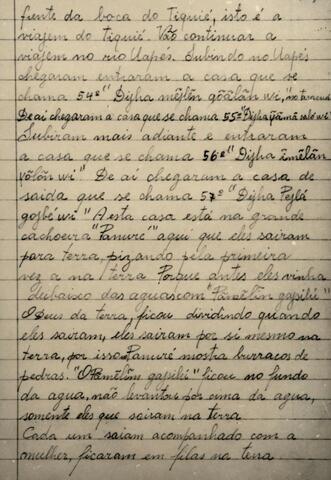 frente da boca do Tiquié, isto é a
viajem do tiquié. Vão continuar a
viajem no rio Uapés. Subindo no Uapés
chegaram entraram a casa que se
chama 54º "Diỹha
De ai chegaram á casa que se chama 55º "Diỹha
Subiram mais adiante e entraram
a casa que se chama 56º "Diỹha
wi" De ai chegaram a casa de
saida que se chama 57º "Diỹha
wi" A esta casa está na grande
cachoeira "Panuré" aqui que eles sairam
para terra, pizando pela primeira
vez a na terra. Porque antes eles vinha
debaixo das aguas com "Pãmẽlĩn gapihi"
O Deus da terra, ficou dividindo quando
eles sairam, eles sairam por si mesmo na
terra, por isso Panuré mostra burracos de
pedras. "O Pãmẽlĩn gapihi" ficou no fundo
da agua, não levantou por cima da agua,
somente eles que sairam na terra
Cada um saiam acompanhado com a
mulher, ficaram em filas na terra